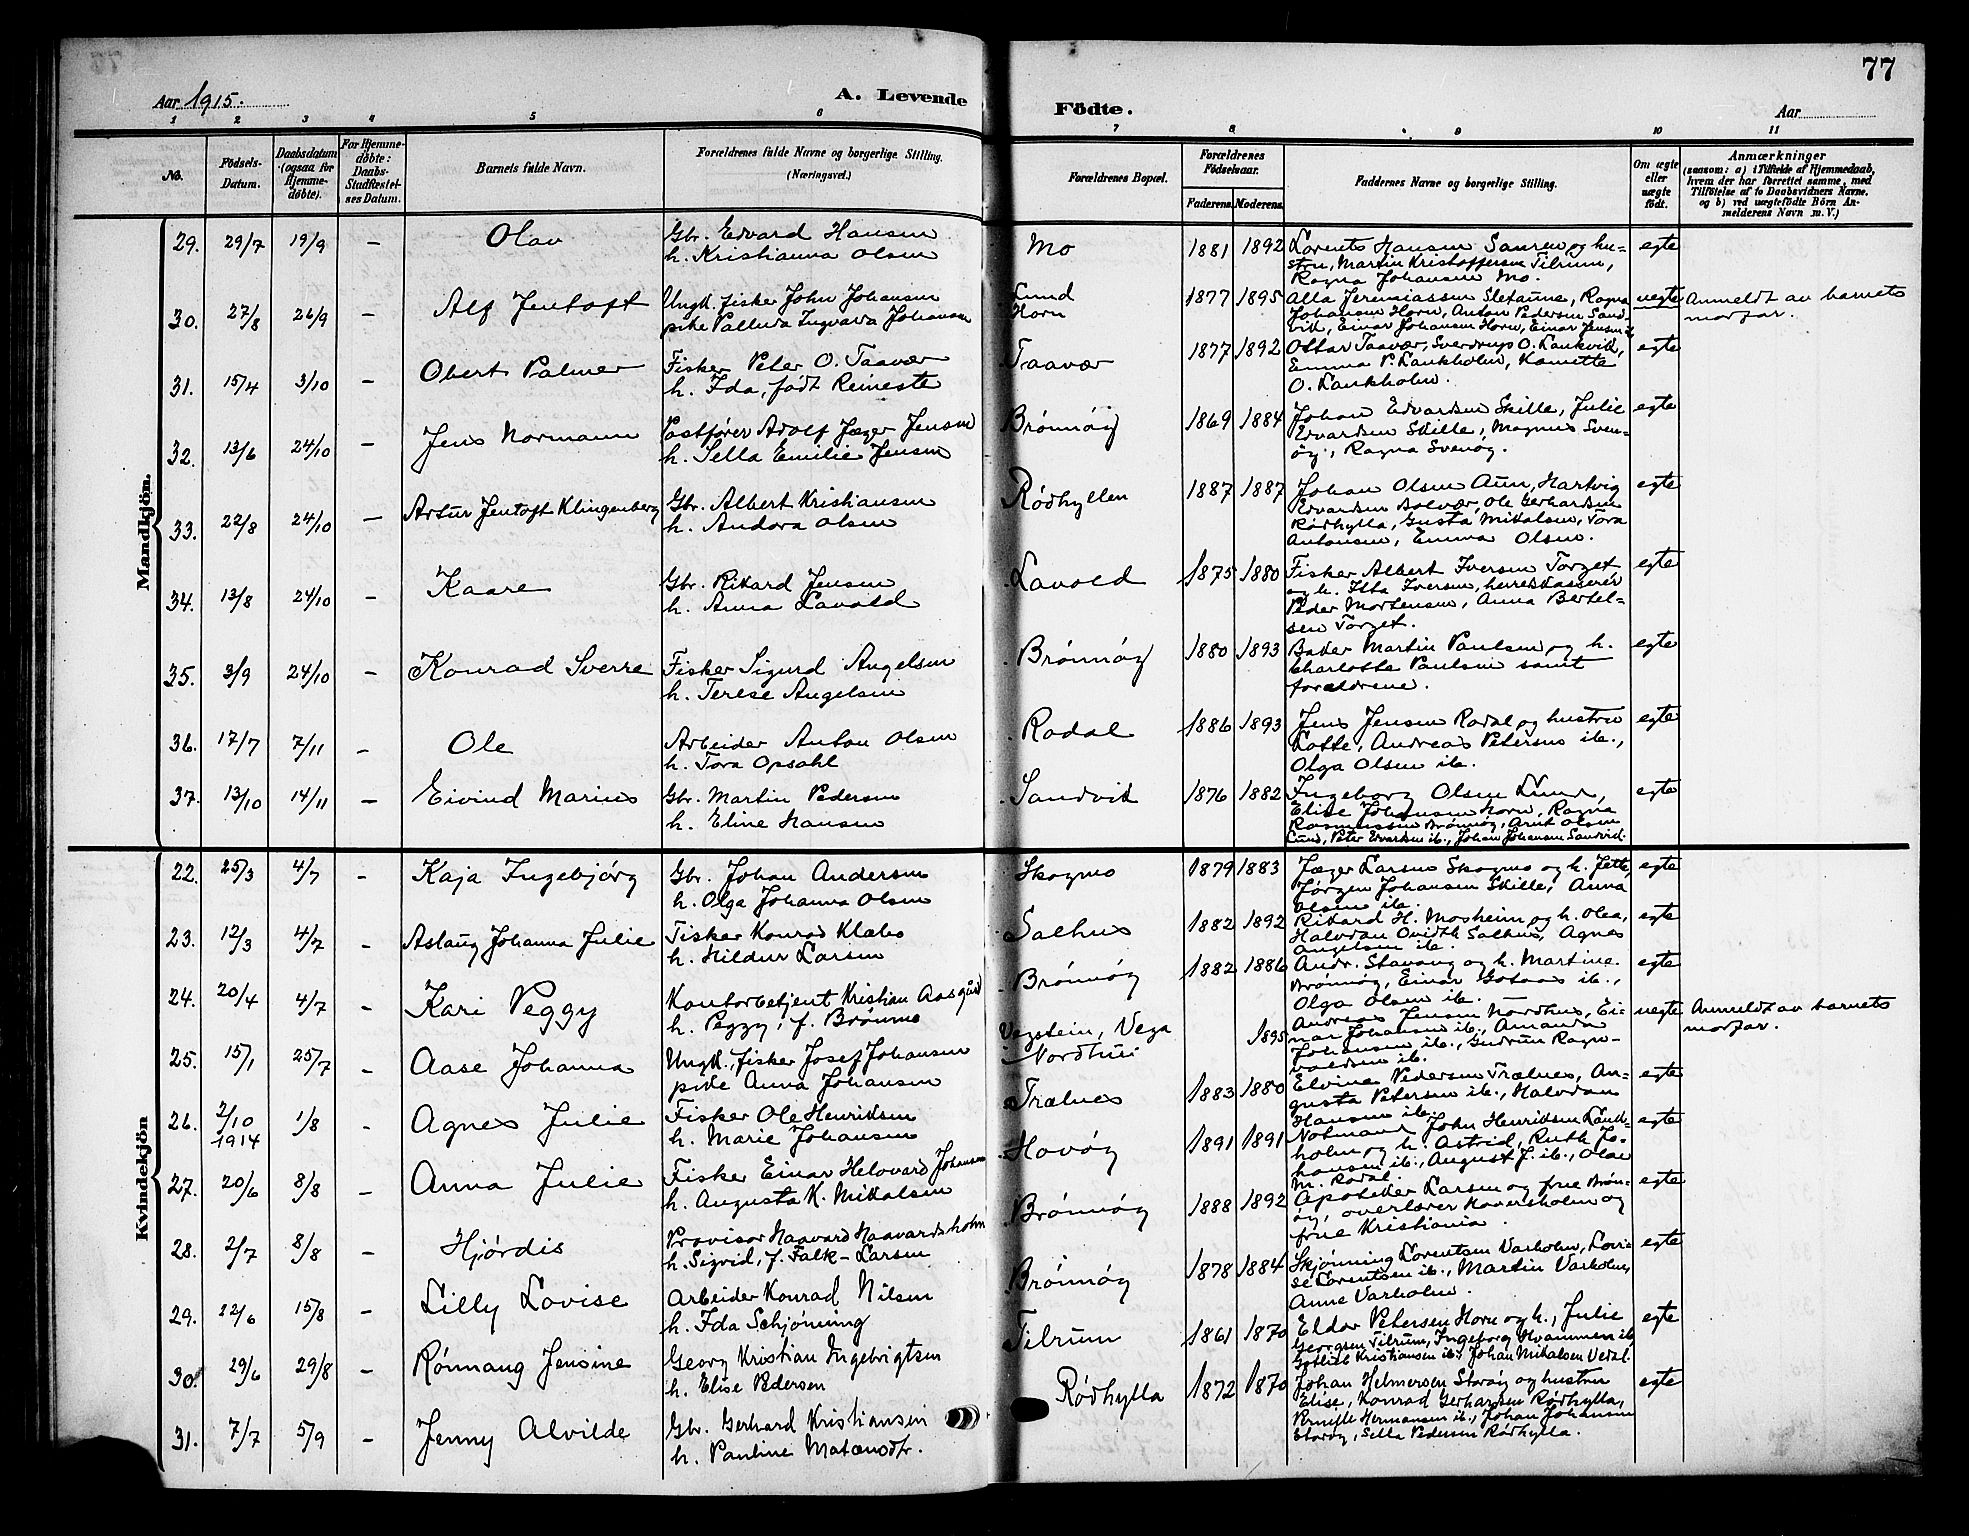 77
Aar 1915.
A. Levende Födte.
Aar
1 2 3 4 5 6 7 8 9 10 11
No.
Födsels-Datum.
Daabsdatum (ogsaa for Hjemmedöbte).
For Hjemmedöbte: Daabs-Stadfæstelses Datum.
Barnets fulde Navn.
Forældrenes fulde Navne og borgerlige Stilling. (Næringsvei.)
Forældrenes Bopæl.
Forældrenes Födselsaar.
Faderens. Moderens.
Faddernes Navne og borgerlige Stilling.
Om ægte eller uægte födt.
Anmærkninger
(saasom: a) i Tilfælde af Hjemmedaab,
hvem der har forrettet samme, med
Tilföielse af to Daabsvidners Navne.
og b) ved uægtefödte Börn An-
melderens Navn m. V.)
Mandkjön.
29. 29/7 19/9 – Olav
Gbr. Edvard Hansen
h. Kristianna Olsen
Mo 1881 1892
Lorents Hansen Sauren og hu-
stru, Martin Kristoffersen Tilrum,
Ragna Johansen Mo.
egte
30. 27/8 26/9 – Alf Jentoft
Ungk. fisker John Johansen
pike Palluda Ingvarda Johansen
Lund
Horn
1877 1895
Alla Jeremiassen Sletaune, Ragna
Johansen Horn, Anton Pedersen Sand-
vik, Einar Johansen Horn, Einar Jensen
uegte
Anmeldt av barnets
morfar.
31. 15/4 3/10 – Obert Palmer
Fisker Peter O. Taavær
h. Ida, født Remeste
Taavær 1877 1892
Ottar Taavær, Sverdrup O. Lankvik,
Emma P. Lankholm, Kamette
O. Lankholm.
egte
32. 13/6 24/10 – Jens Normann
Postfører Adolf Jæger Jensen
h. Sella Emilie Jensen
Brønnøy 1869 1884
Johan Edvardsen Skille, Julie
Edvardsen Skille, Magnus Sven-
øy, Ragna Svenøy.
egte
33. 22/8 24/10 – Artur Jentoft Klingenberg
Gbr. Albert Kristiansen
h. Andora Olsen
Rødhyllen 1887 1887
Johan Olsen Aun, Hartvig
Edvardsen Bolvær, Ole Gerhardsen
Rødhylla, Gusta Mikalsen, Tora
Antonsen, Emma Olsen.
egte
34. 13/8 24/10 – Kaare
Gbr. Rikard Jensen
h. Anna Lavold
Lavold 1875 1880
Fisker Albert Iversen Torget
og h. Ilta Iversen, herredskasserer
Peder Mortensen, Anna Bertel-
sen Torget.
egte
35. 3/9 24/10 – Konrad Sverre
Fisker Sigurd Angelsen
h. Terese Angelsen
Brønnøy 1880 1893
Baker Martin Paulsen og h.
Charlotte Paulsen samt
forældrene.
egte
36. 17/7 7/11 – Ole
Arbeider Anton Olsen
h. Tora Opsahl
Rodal 1886 1893
Jens Jensen Rodal og hustru
Lotte, Andreas Petersen ib.,
Olga Olsen ib.
egte
37. 13/10 14/11 – Eivind Marius
Gbr. Martin Pedersen
h. Eline Hansen
Sandvik 1876 1882
Ingeborg Olsen Lund,
Elise Johansen Horn, Ragna
Rasmussen Brønnøy, Arnt Olsen
Lund, Peter Edvardsen ib., Johan Johansen Sandvik.
egte
Kvindekjön
22. 25/3 4/7 – Kaja Ingebjørg
Gbr. Johan Andersen
h. Olga Johanna Olsen
Skogmo 1879 1883
Jæger Larsen Skogmo og h. Jette,
Jørgen Johansen Skille, Anna
Olsen ib.
egte
23. 12/3 4/7 – Aslaug Johanna Julie
Fisker Konrad Klæbo
h. Hildur Larsen
Salhus 1882 1892
Rikard H. Mosheim og h. Olea,
Halvdan Ovidth Salhus, Agnes
Angelsen ib.
egte
24. 20/4 4/7 – Kari Peggy
Kontorbetjent Kristian Aasgård
h. Peggy, f. Brønmo
Brønnøy 1882 1886
Andr. Stavang og h. Martine
Brønnøy, Einar Gotaas ib.,
Olga Olsen ib.
egte
25. 15/1 25/7 – Aase Johanna
Ungk. fisker Josef Johansen
pike Anna Johansen
Vegstein, Vega
Nordhus
1895
Andreas Jensen Nordhus, Ei-
nar Johansen ib., Amanda
Johansen ib., Gudrun Ragn-
valdsen ib.
uegte
Anmeldt av barnets
morfar.
26. 2/10 1914 1/8 – Agnes Julie
Fisker Ole Henriksen
h. Marie Johansen
Trælnes 1883 1880
Elvine Pedersen Trælnes, Au-
gusta Petersen ib., Halvdan
Hansen ib.
egte
27. 20/6 8/8 – Anna Julie
Fisker Einar Helovard Johansen
h. Augusta K. Mikalsen
Havøy 1891 1891
Notmand John Henriksen Lank-
holm og h. Astrid, Ruth Jo-
hansen ib., August J. ib., Olav
M. Rodal.
egte
28. 2/7 8/8 – Hjørdis
Provisor Haavard Haavardsholm
h. Sigrid, f. Falk-Larsen
Brønnøy 1888 1892
Apoteker Larsen og frue Brøn-
øy, overlærer Haversholm og
frue Kristiania.
egte
29. 12/6 15/8 – Lilly Lovise
Arbeider Konrad Nilsen
h. Ida Schjønning
Brønnøy 1878 1884
Skjønning Lorentsen Varholm, Lovi-
se Lorentsen ib., Martin Varholm,
Anne Varholm.
egte
30. 29/6 29/8 – Rønnaug Jensine
Georg Kristian Ingebrigtsen
h. Elise Pedersen
Tilrum 1861 1870
Eldor Petersen Horn og h., Julie
Georgsen Tilrum, Ingeborg Kvammen ib.
Gotlieb Kristiansen ib., Johan Mikalsen Vedal.
egte
31. 7/7 5/9 – Jenny Alvilde
Gbr. Gerhard Kristiansen
h. Pauline Matæusdtr.
Rødhylla 1872 1870
Johan Helmersen Storøy og hustru
Elise, Konrad Gerhardsen Rødhylla,
Pernille Hermansen ib., Johan Johansen
Storøy, Sella Pedersen Rødhylla.
egte